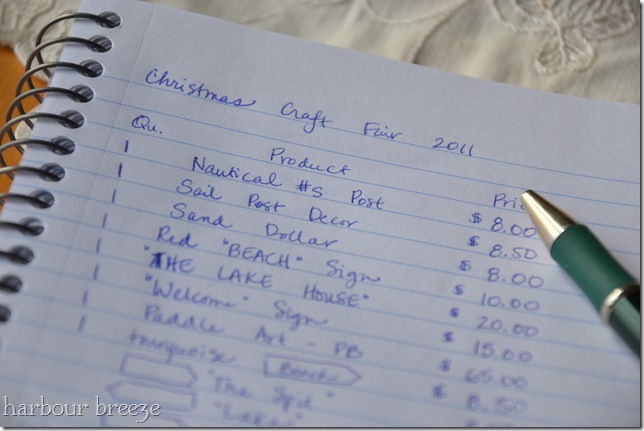 Christmas Craft Fair 2011
Qu. Product Pri
1 Nautical #s Post $ 8.00
1 Sail Post Decor $ 8.50
1 Sand Dollar $ 8.00
1 Red "BEACH" Sign $ 10.00
1 "THE LAKE HOUSE" $ 20.00
1 "Welcome" Sign $ 15.00
1 Paddle Art - PB $ 65.00
1 tourqueise Beach $ 8.50
"The Spit"
harbour breeze